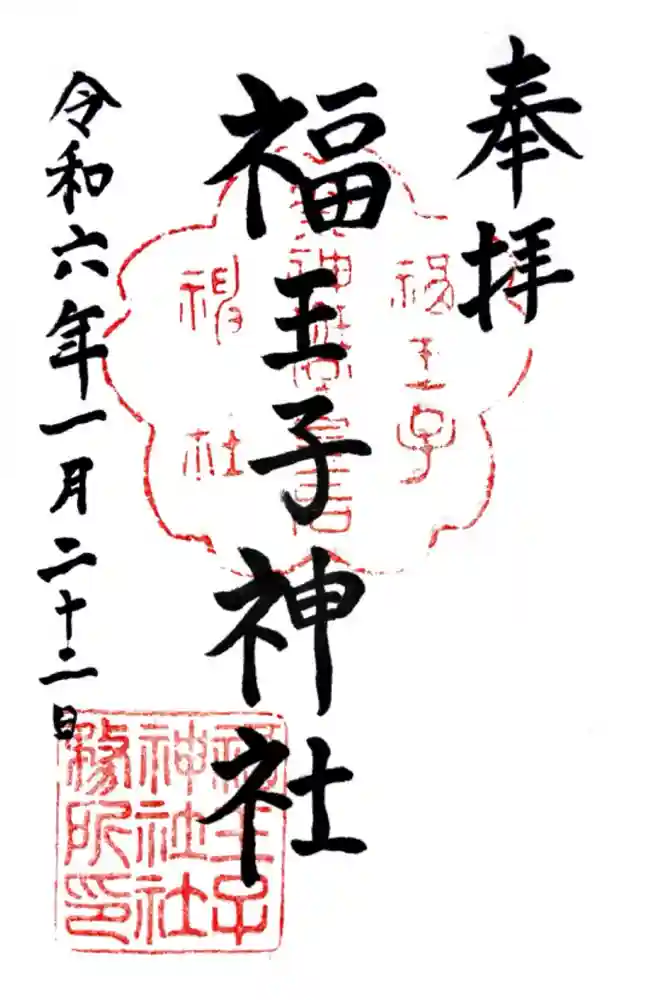 奉拝
福王子神社
令和六年一月二十二日
福王子
神社
福王子
神社社
務所印